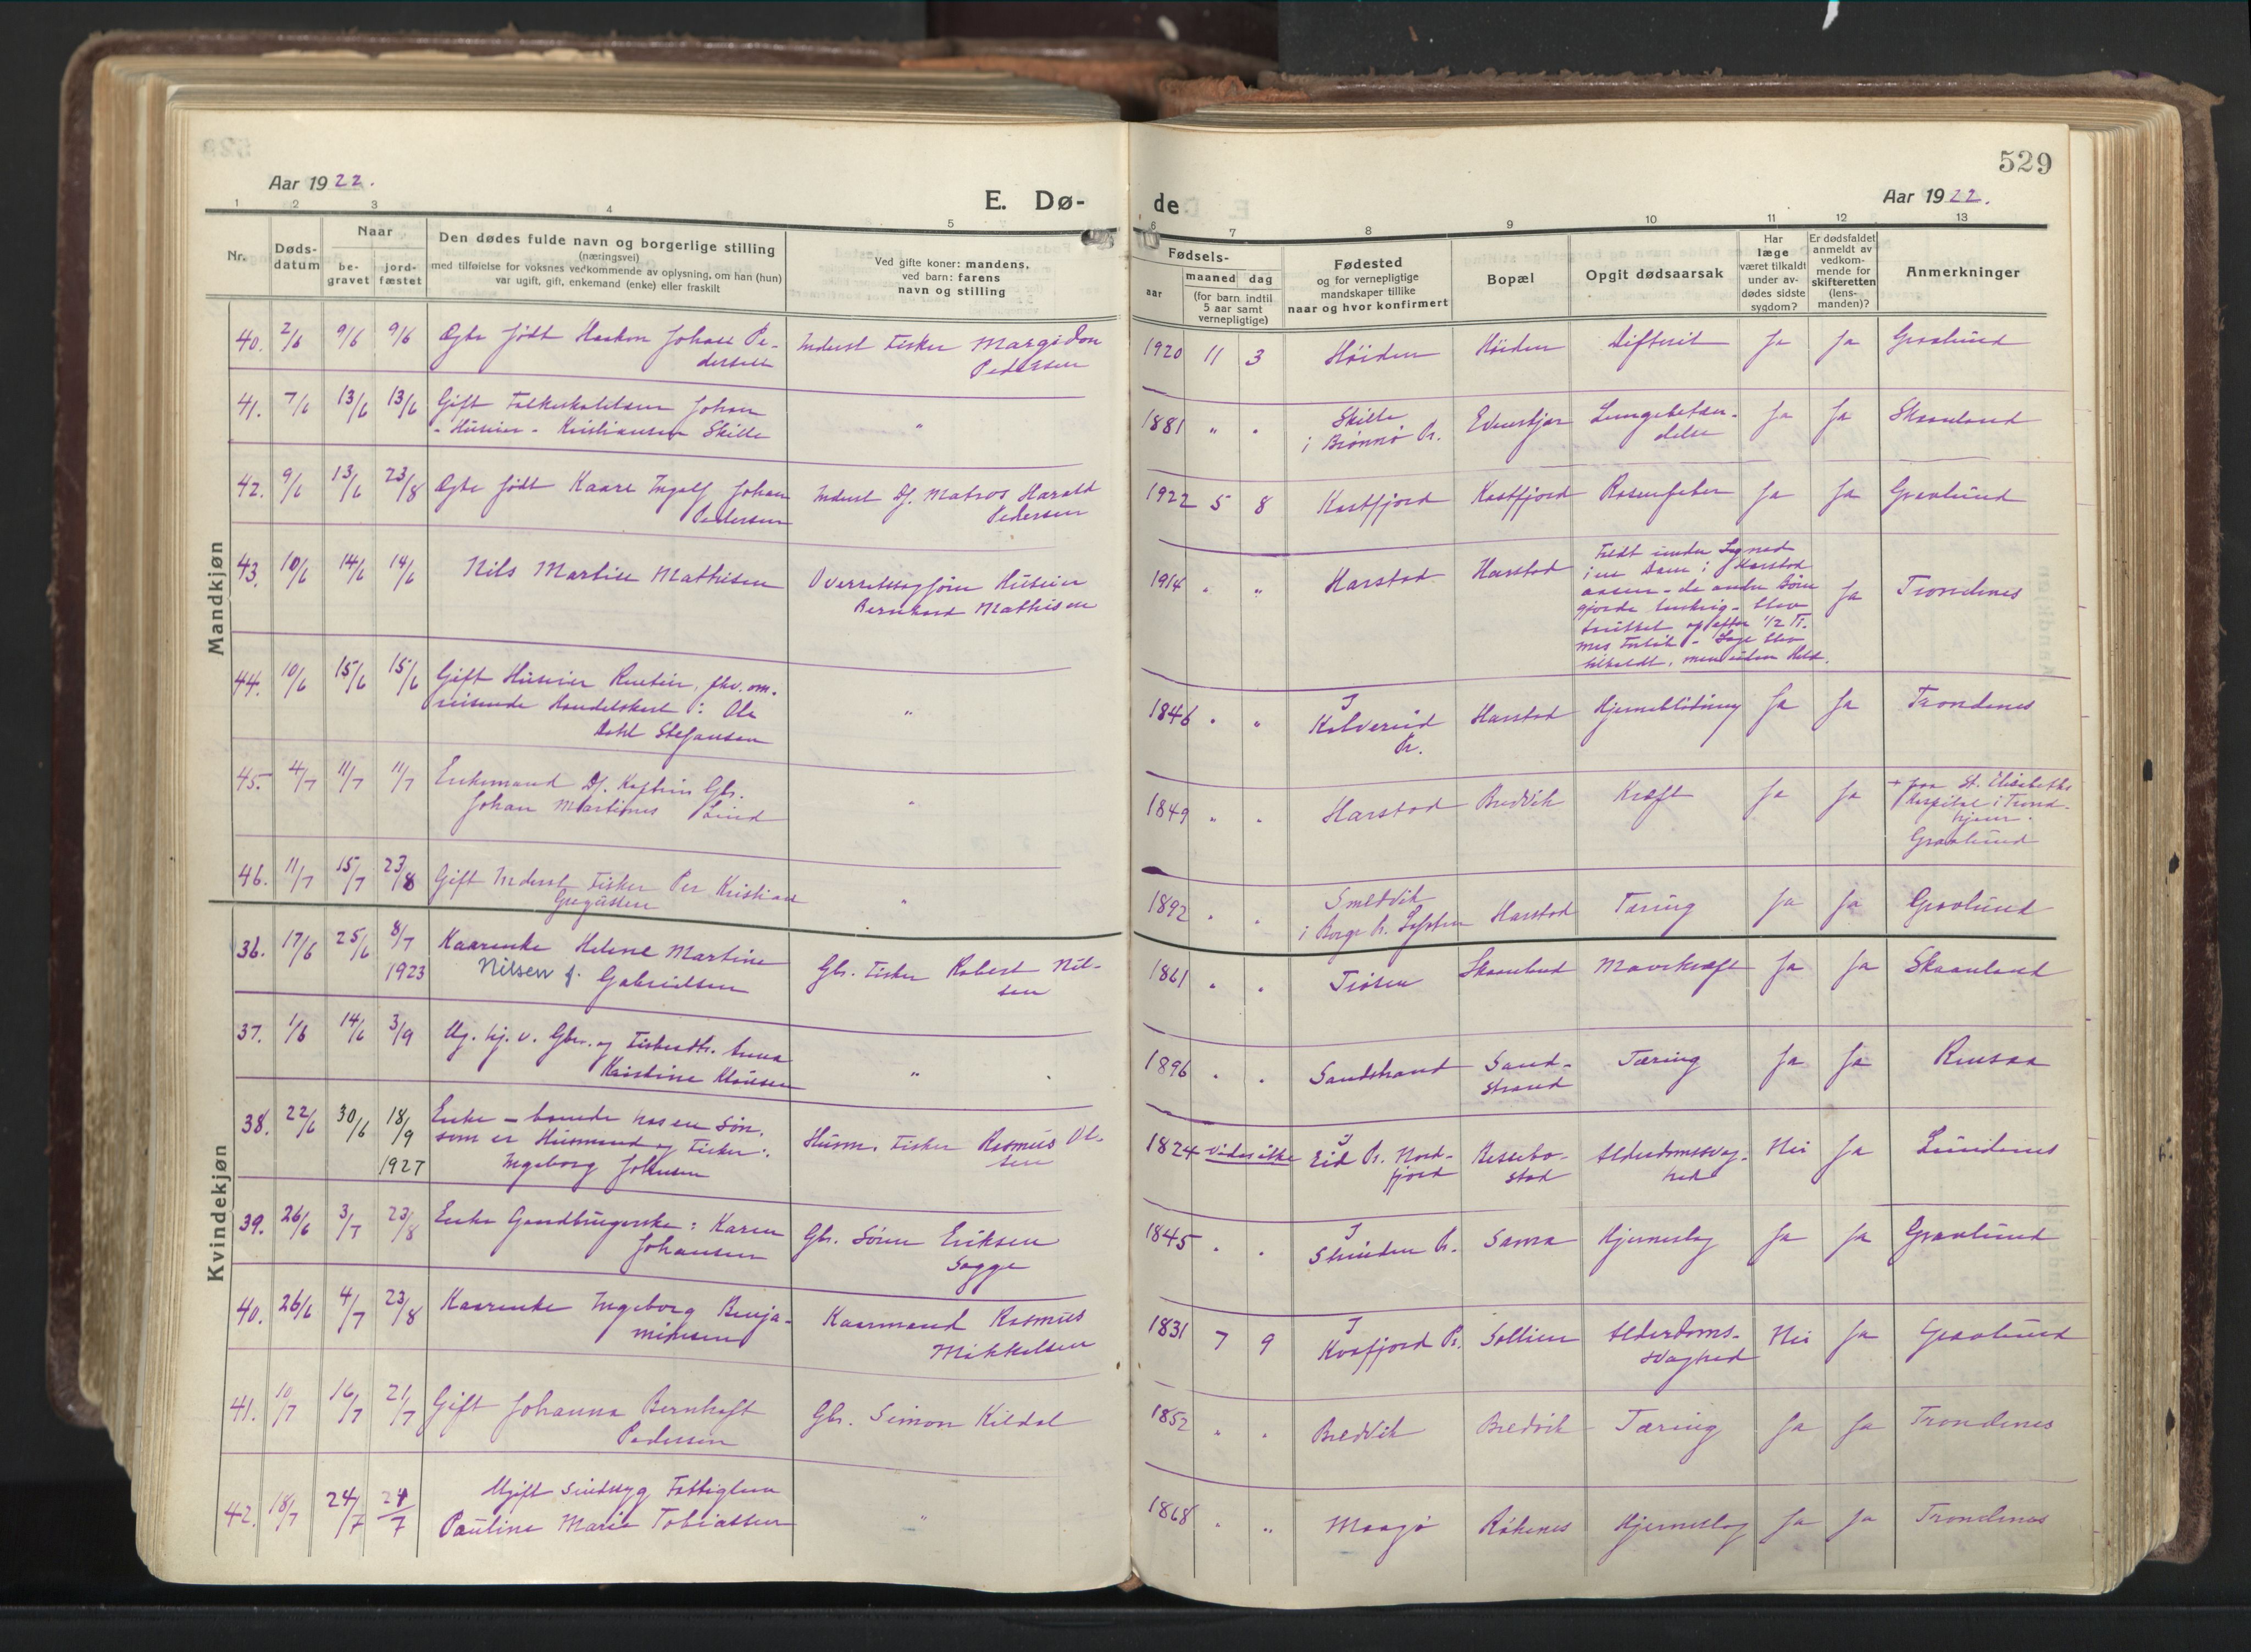 529
Aar 1922.
E. Dø-
de
Aar 1922.
1 2 3 4 5 6 7 8 9 10 11 12 13
Nr.
Døds-
datum
Naar
be-
gravet
jord-
fæstet
Den dødes fulde navn og borgerlige stilling
(næringsvei)
med tilføielse for voksnes vedkommende av oplysning, om han (hun)
var ugift, gift, enkemand (enke) eller fraskilt
Ved gifte koner: mandens,
ved barn: farens
navn og stilling
Fødsels-
aar
maaned dag
(for barn indtil
5 aar samt
vernepligtige)
Fødested
og for vernepligtige
mandskaper tillike
naar og hvor konfirmert
Bopæl
Opgit dødsaarsak
Har
læge
været tilkaldt
under av-
dødes sidste
sygdom?
Er dødsfaldet
anmeldt av
vedkom-
mende for
skifteretten
(lens-
manden)?
Anmerkninger
Mandkjøn
40. 2/6 9/6 9/6 Ægte født Haakon Johan Pe-
dersen
Inderst Fisker Margidon
Pedersen
1920 11 3 Høiden Høiden Difterit Ja Ja Gravlund
41. 7/6 13/6 13/6 Gift Johan
- Huseier - Kristiansen Skille
"
1881 " " Skille
i Brønnø Pr.
Evenskjær Lungebetæn-
delse
Ja Ja Skaanland
42. 9/6 13/6 23/8 Ægte født Kaare Ingolf Johan
Pedersen
Inderst Df. Matros Harald
Pedersen
1922 5 8 Kastfjord Kastfjord Rosenfeber Ja Ja Gravlund
43. 10/6 14/6 14/6 Nils Martin Mathisen
Huseier
Bernhard Mathisen
1914 " " Harstad Harstad
i en Dam i Harstad
aasen - de andre Børn
gjorde - blev
og efter 1/2 Ti-
mes - Læge blev
tilkaldt, men uden Held.
Ja Trondenes
44. 10/6 15/6 15/6 Gift Huseier Rentier, fhv. om-
reisende Handelskarl: Ole
Dahl Stefansen
"
1846 " " I
Kolvereid
Pr.
Harstad Hjerneblødning Ja Ja Trondenes
45. 4/7 11/7 11/7 Enkemand Df. Kaptein Gbr.
Johan Martinus Lind
"
1849 " " Harstad Bredvik Kræft Ja Ja + paa St. Elisabeths
Hospital i Trond-
hjem.
Gravlund
46. 11/7 15/7 23/8 Gift Inderst Fisker Per Kristian
Gregussen
"
1892 " " Smedvik
i Borge Pr. Lofoten
Harstad Tæring Ja Ja Gravlund
Kvindekjøn
36. 17/6 25/6 8/7
1923
Kaarenke Helene Martine
Nilsen f. Gabrielsen
Gbr. Fisker Robert Nil-
sen
1861 " " Trøsen Skaanland Mavekræft Ja Ja Skaanland
37. 1/6 14/6 3/9 Ug. hj. v. Gbr. og Fiskerdtr. Anna
Kristine Klausen
"
1896 " " Sandstrand Sand-
strand
Tæring Ja Ja Rensaa
38. 22/6 30/6 18/9
1927
Enke - boende hos en Søn,
som er Husmand og Fisker:
Ingeborg Johnsen
Husm. Fisker Rasmus Ol-
sen
1824 vides ikke I
Eid Pr. Nord-
fjord
Kessebo-
stad
Alderdomssvag-
hed
Nei Ja Lundenes
39. 26/6 3/7 23/8 Enke Gaardbrugerske: Karen
Johansen
Gbr. Sören Eriksen
Sagge
1845 " " I
Strinden Pr.
Sama Hjerneslag Ja Ja Gravlund
40. 26/6 4/7 23/8 Kaarenke Ingeborg Benja-
minsen
Kaarmand Rasmus
Mikkelsen
1831 7 9 I
Kvæfjord Pr.
Sollien Alderdoms-
svaghed
Nei Ja Gravlund
41. 10/7 16/7 21/7 Gift Johanna Bernhoft
Pedersen
Gbr. Simon Kildal
1852 " " Bredvik Bredvik Tæring Ja Ja Trondenes
42. 18/7 24/7 24/7 Ugift Sindssyg Fattiglem
Pauline Marie Tobiassen
"
1868 " " Maagø Røkenes Hjerneslag Ja Ja Trondenes